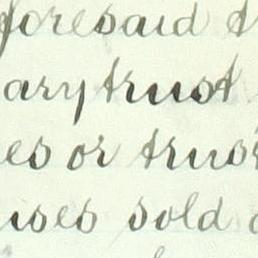 foresaid t
ary trust
es or trus
uses sold